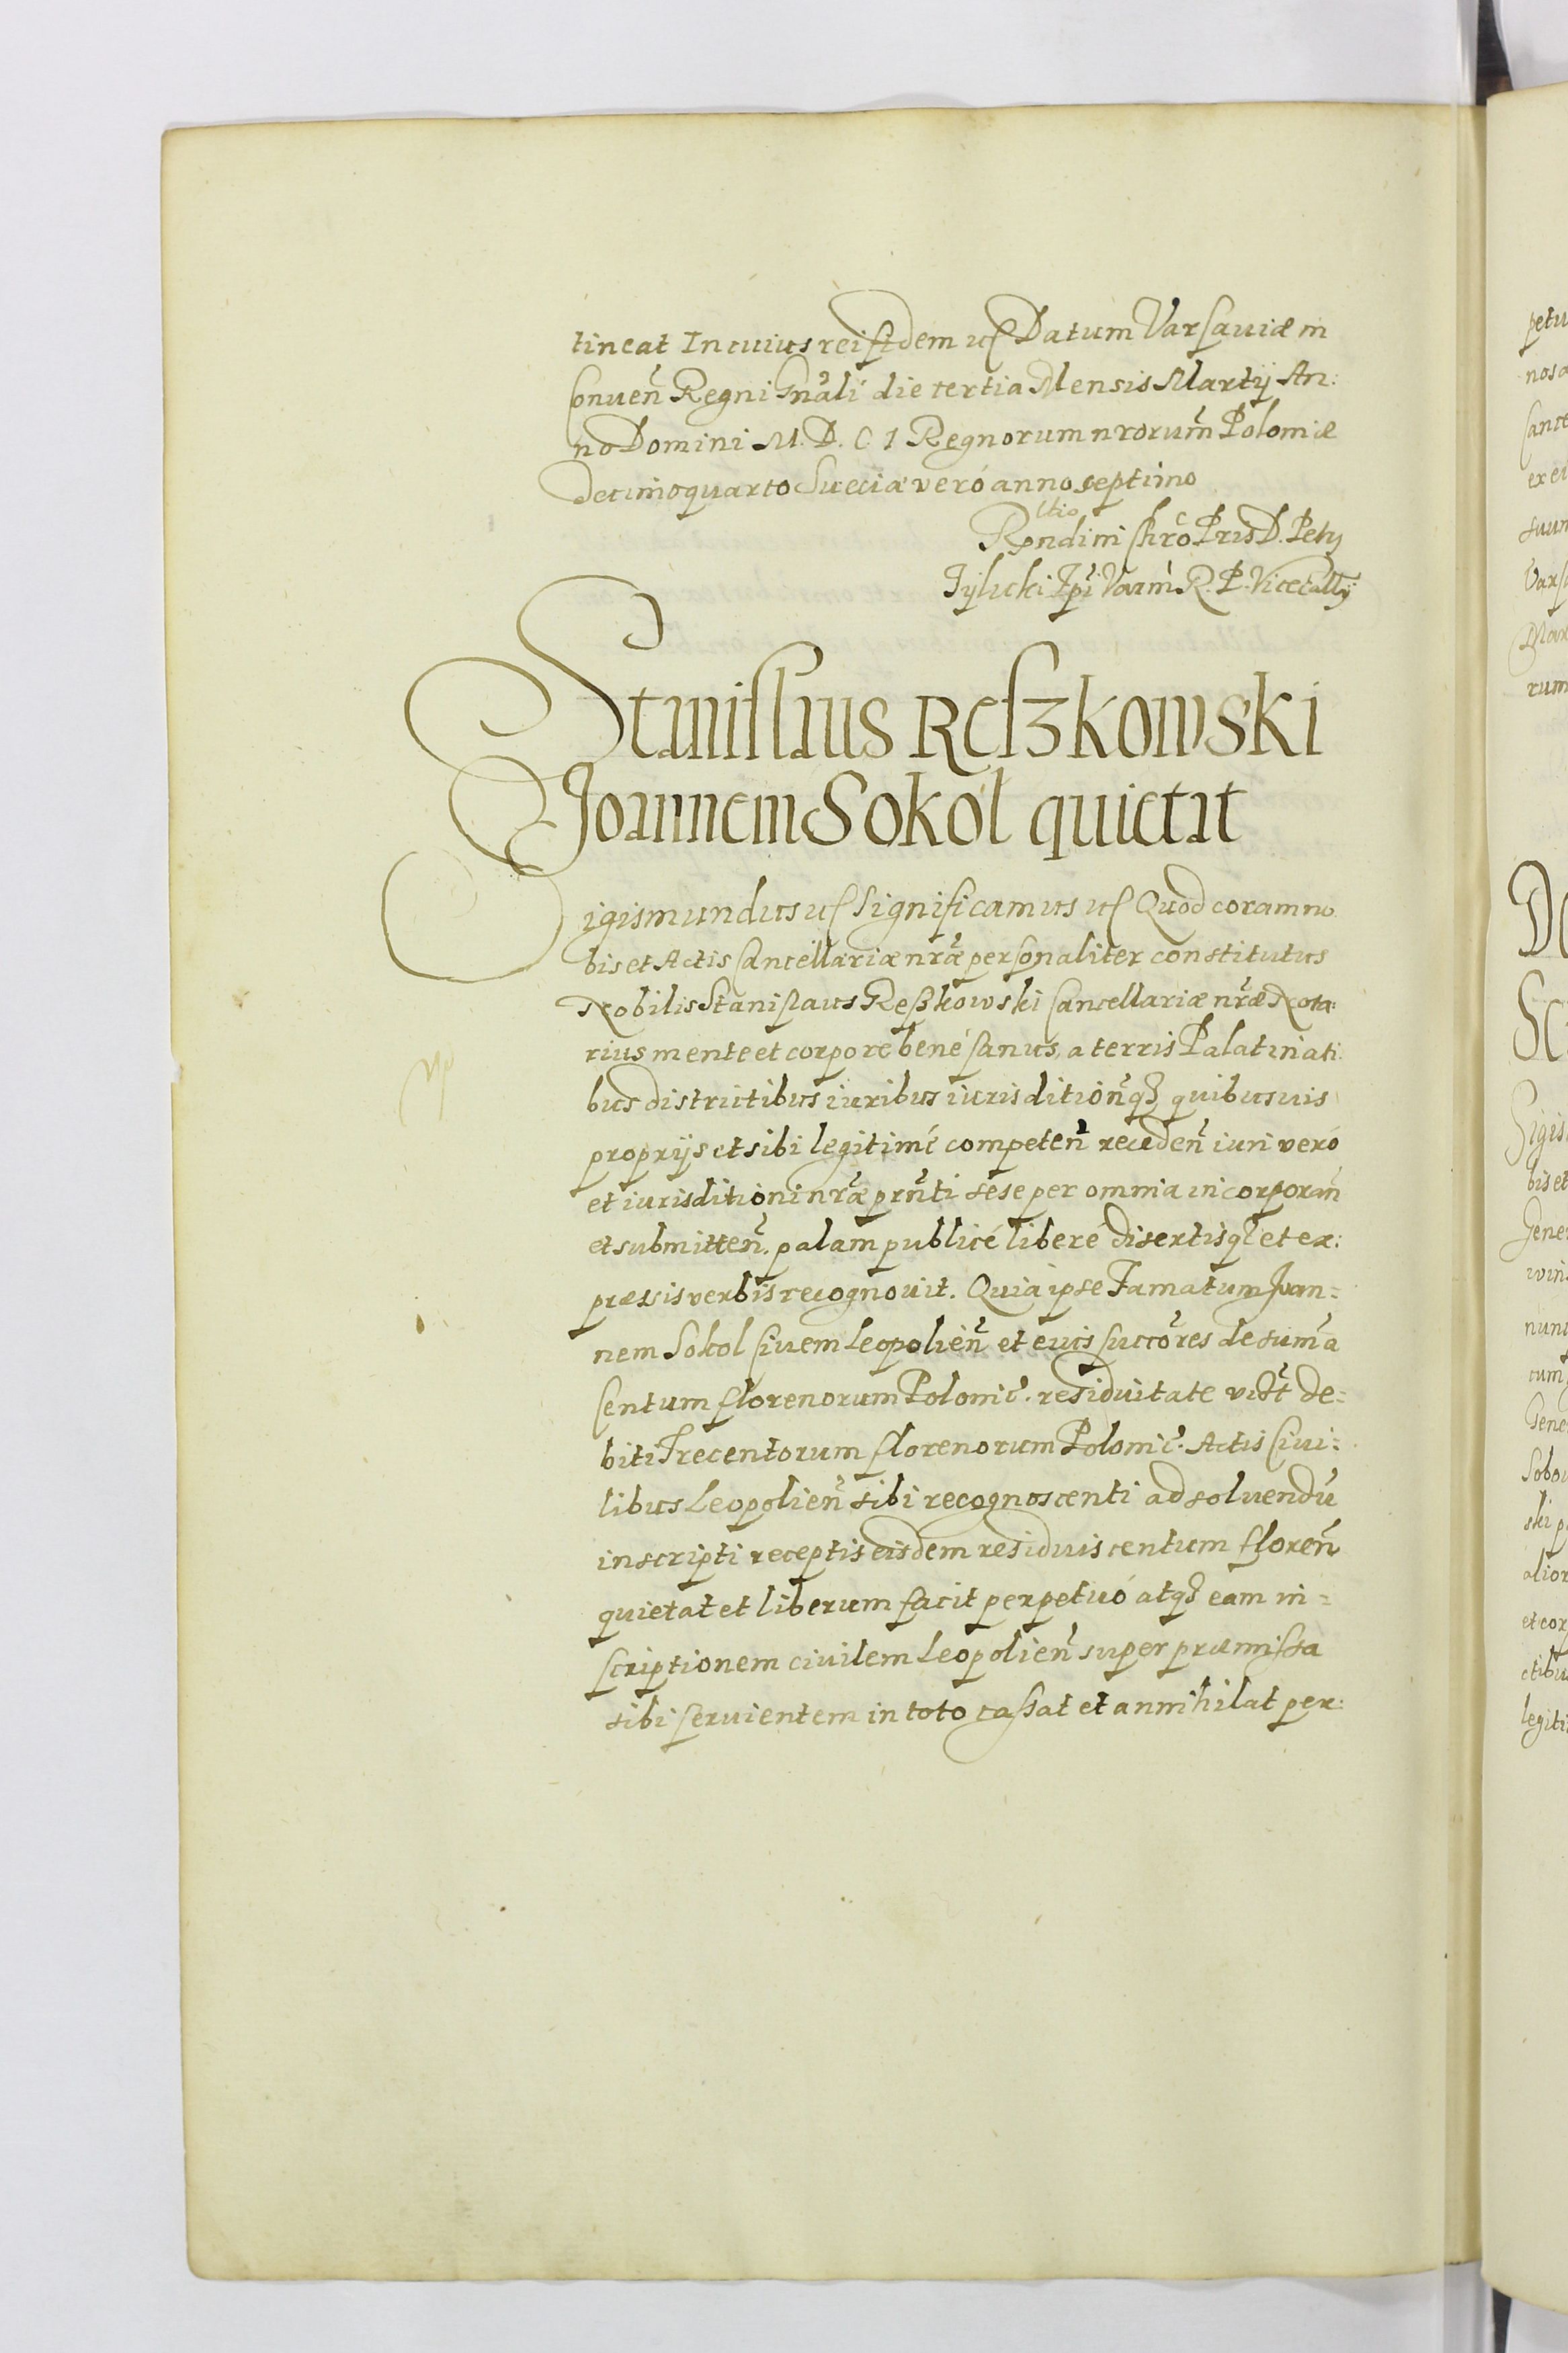 tineat In cuius rei fidem uc Datum Varsauiæ in
Conuen̄ Regni Gn̄ali die tertia Mensis Martij An:
no Domini M. D. C 1 Regnorum nrorum̄ Poloniæ
decimoquarto Sueciæ veró anno septimo
Rpndimi Chrō Pris D. Petri
Tylicki Epī Varm̄ R. P. Vicecally
Stanislaus Reszkowski
Joannem Sokol quietat
Sigismundus uc Significamus uc Quod coram no
bis et Actis Cancellariæ nrāe personaliter constitutus
Nobilis Stanislaus Reszkowski Cancellariæ nrāe Nota:
rius mente et corpore bené sanus, a terris Palatinati:
bus districtibus iuribus iurisdition̄q quibusuis
proprijs et sibi legitimé competen̄ receden̄ iuri veró
et iurisditioni nrāe prn̄ti sese per omnia incorporan̄
et submitten̄. palam publicé liberé disertisq et ex:
præssis verbis recognouit. Quia ipse Famatum Joan=
nem Sokol Ciuem Leopolien̄ et eius succores de summa
Centum florenorum Polonic̄. residuitate vidt̄ de=
biti Trecentorum florenorum Polonic̄. Actis Ciui=
libus Leopolien̄ sibi recognoscenti ad soluendū
inscripti receptis eisdem residuis centum floren̄
quietat et liberum facit perpetuó atq eam in=
scriptionem ciuilem Leopolien̄ super præmissa
sibi seruientem in toto cassat et annihilat per: